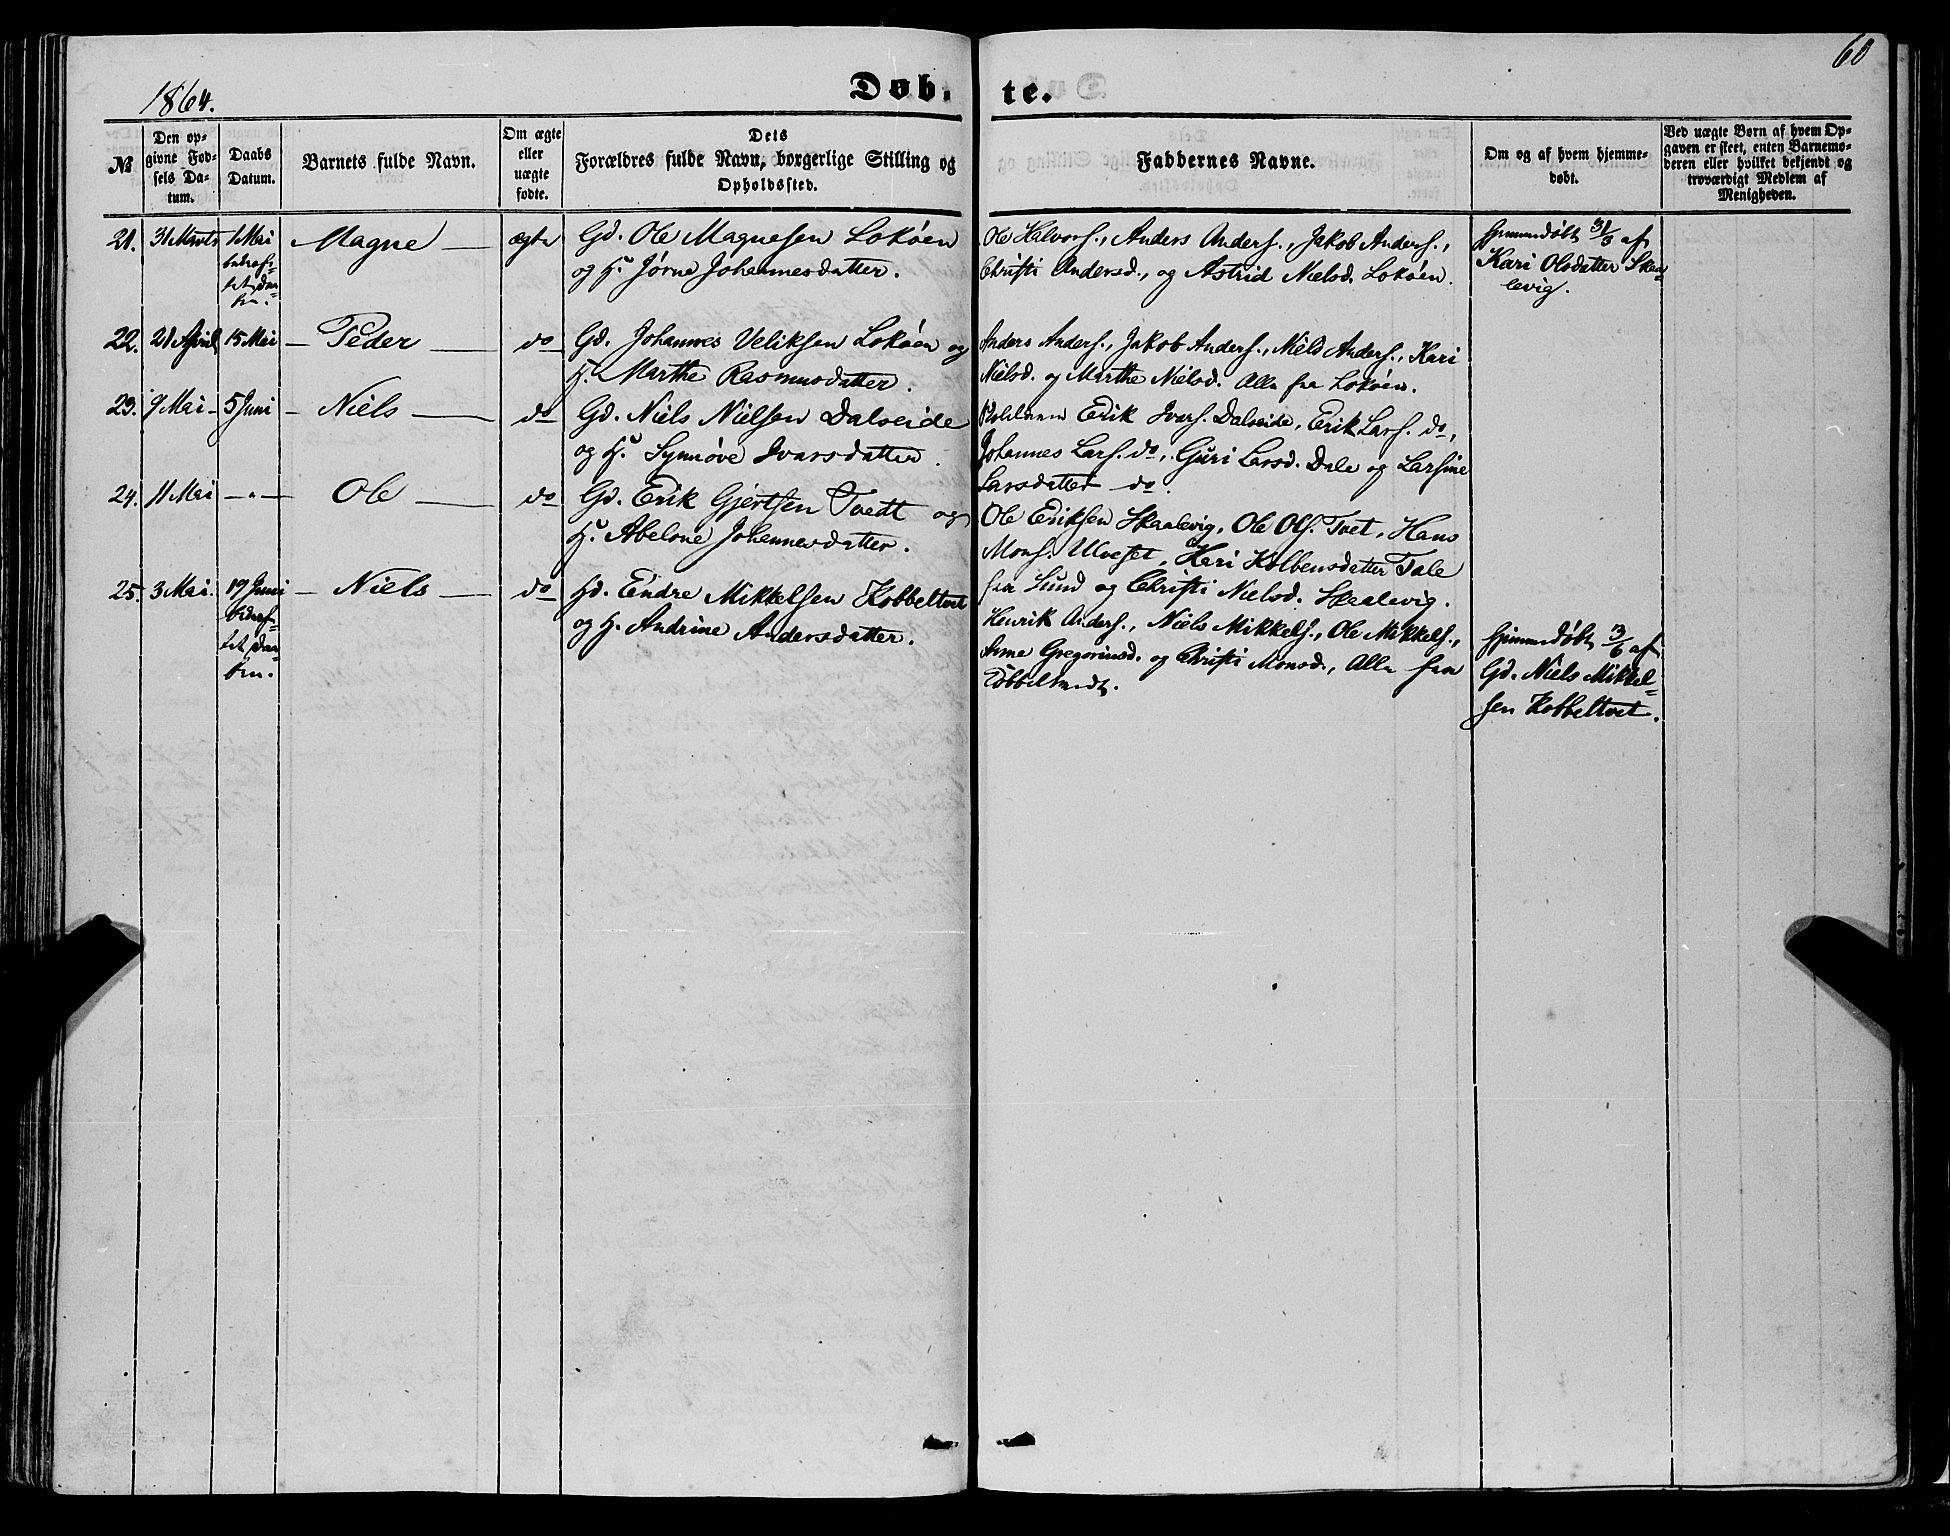 60
1864.
Døb- te.
№
Den op-
givne Fød-
sels Da-
tum.
Daabs
Datum.
Barnets fulde Navn.
Om ægte
eller
uægte
fødte.
Dets
Forældres fulde Navn, borgerlige Stilling og
Opholdssted.
Faddernes Navne.
Om og af hvem hjemme-
døbt.
Ved uægte Børn af hvem Op-
gaven er skeet, enten Barnemo-
deren eller hvilket bekjendt og
troværdigt Medlem af
Menigheden.
21. 31 Marts 1 Mai Magne ægte
bekræf-
tet Daa-
ben.
Gd. Ole Magnesen Lokøen
og H. Jørne Johannesdatter.
Ole Halvors., Anders Anders., Jakob Anders.,
Christi Andersd., og Astrid Nielsd. Lokøen.
Hjemmedøbt 31/3 af
Kari Olsdatter Skaa-
levig.
22. 21 April 15 Mai Peder do
Gd. Johannes Veliksen Lokøen og
H. Marthe Rasmusdatter.
Anders Anders., Jakob Anders., Niels Anders., Kari
Nielsd. og Marthe Nielsd. Alle fra Lokøen.
23. 9 Mai 5 Juni Niels do
Gd. Niels Nielsen Dalseide
og H. Synnøve Ivarsdatter.
Erik Ivars. Dalseide, Erik Lars. do,
Johannes Lars. do, Guri Larsd. Dale og Larsine
Larsdatter do.
24. 11 Mai —"— Ole do
Gd. Erik Gjertsen Tvedt og
H. Abelone Johannesdatter.
Ole Eriksen Skaalevig, Ole Ols. Tvet, Hans
Mons. Ulveset, Kari Kolbensdatter Tale
fra Sund og Christi Nielsd. Skaalevig.
25. 3 Mai. 19 Juni Niels do
bekræf-
tet Daa-
ben.
Hd. Endre Mikkelsen Kobbeltvet
og H. Andrine Andersdatter.
Henrik Anders., Niels Mikkels., Ole Mikkels.,
Anne Gregoriusd. og Christi Monsd., Alle fra
Hjemmedøbt 3/6 af
Gd. Niels Mikkel-
sen Kobbeltvet.